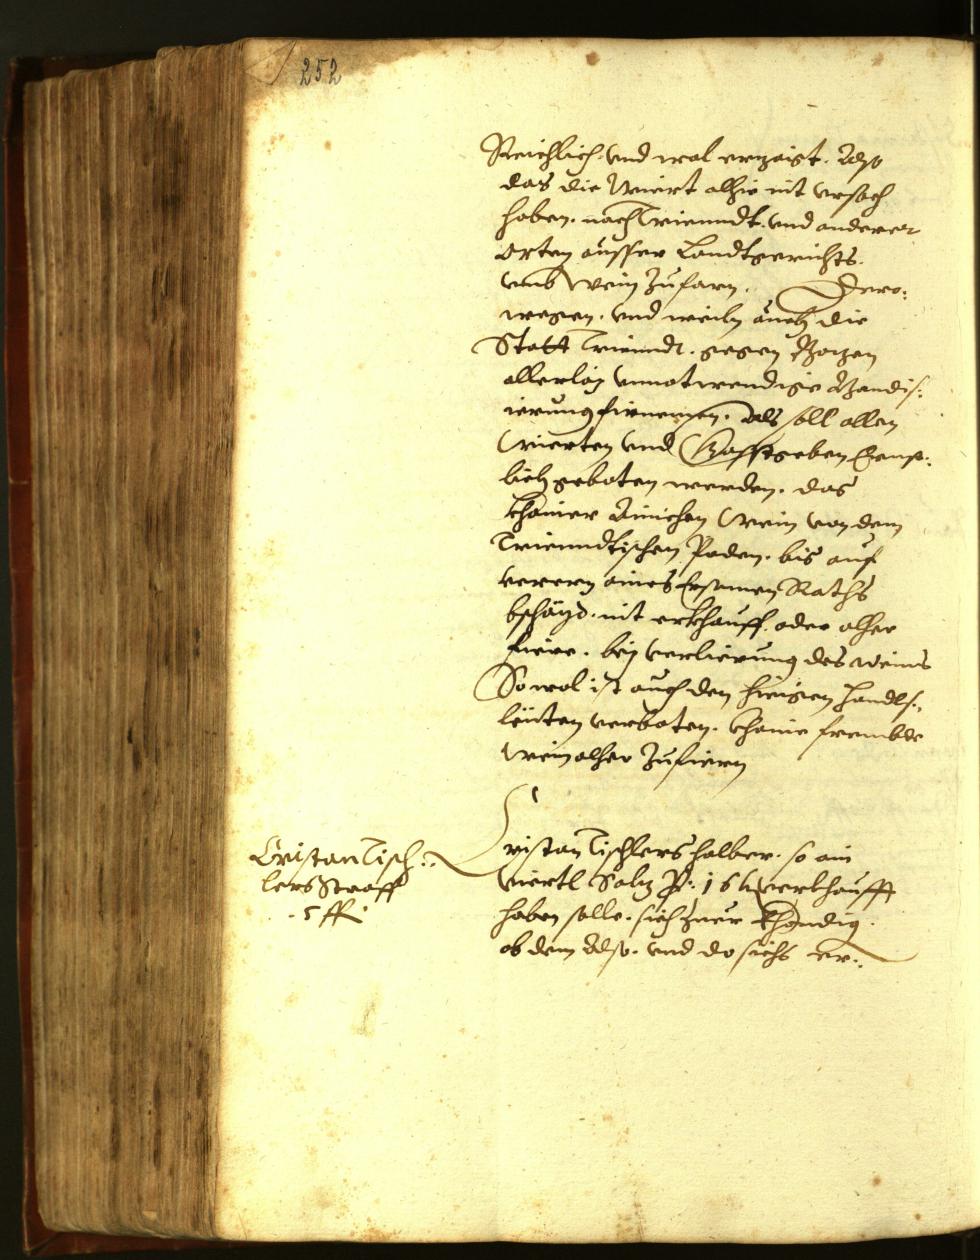 252
Reichlich. und wol erzaigt. Also
das die Wiert alhie nit ursach
haben. nach Trienndt. und anderer
orten ausser Landtgerichts.
umb Wein zufarn. Dero:
wegen. und weiln auch die
Statt Trienndt. gegen Bozen
allerlay unnotwendige Bandis:
ierung firnemen. Als soll allen
Wierten und Gastgeben Ernst:
lich geboten werden. das
khainer Ainichen Wein von dem
Trienndtischen Poden. bis auf
verern aines Ersamen Raths
bschaid. nit erkhauff. oder alher
fiere. bey verlierung des weins
So wol ist auch den hieigen handls:
leüten verboten. khaine frembde
wein alher zufiern
Cristan Tisch:
lers Straff
5 ff.
Cristan Tischlers halber. so ain
viertl Salz P: 16 k verkhaufft
haben solle. sich zuer khondig
ob dem also. und do sichs er: